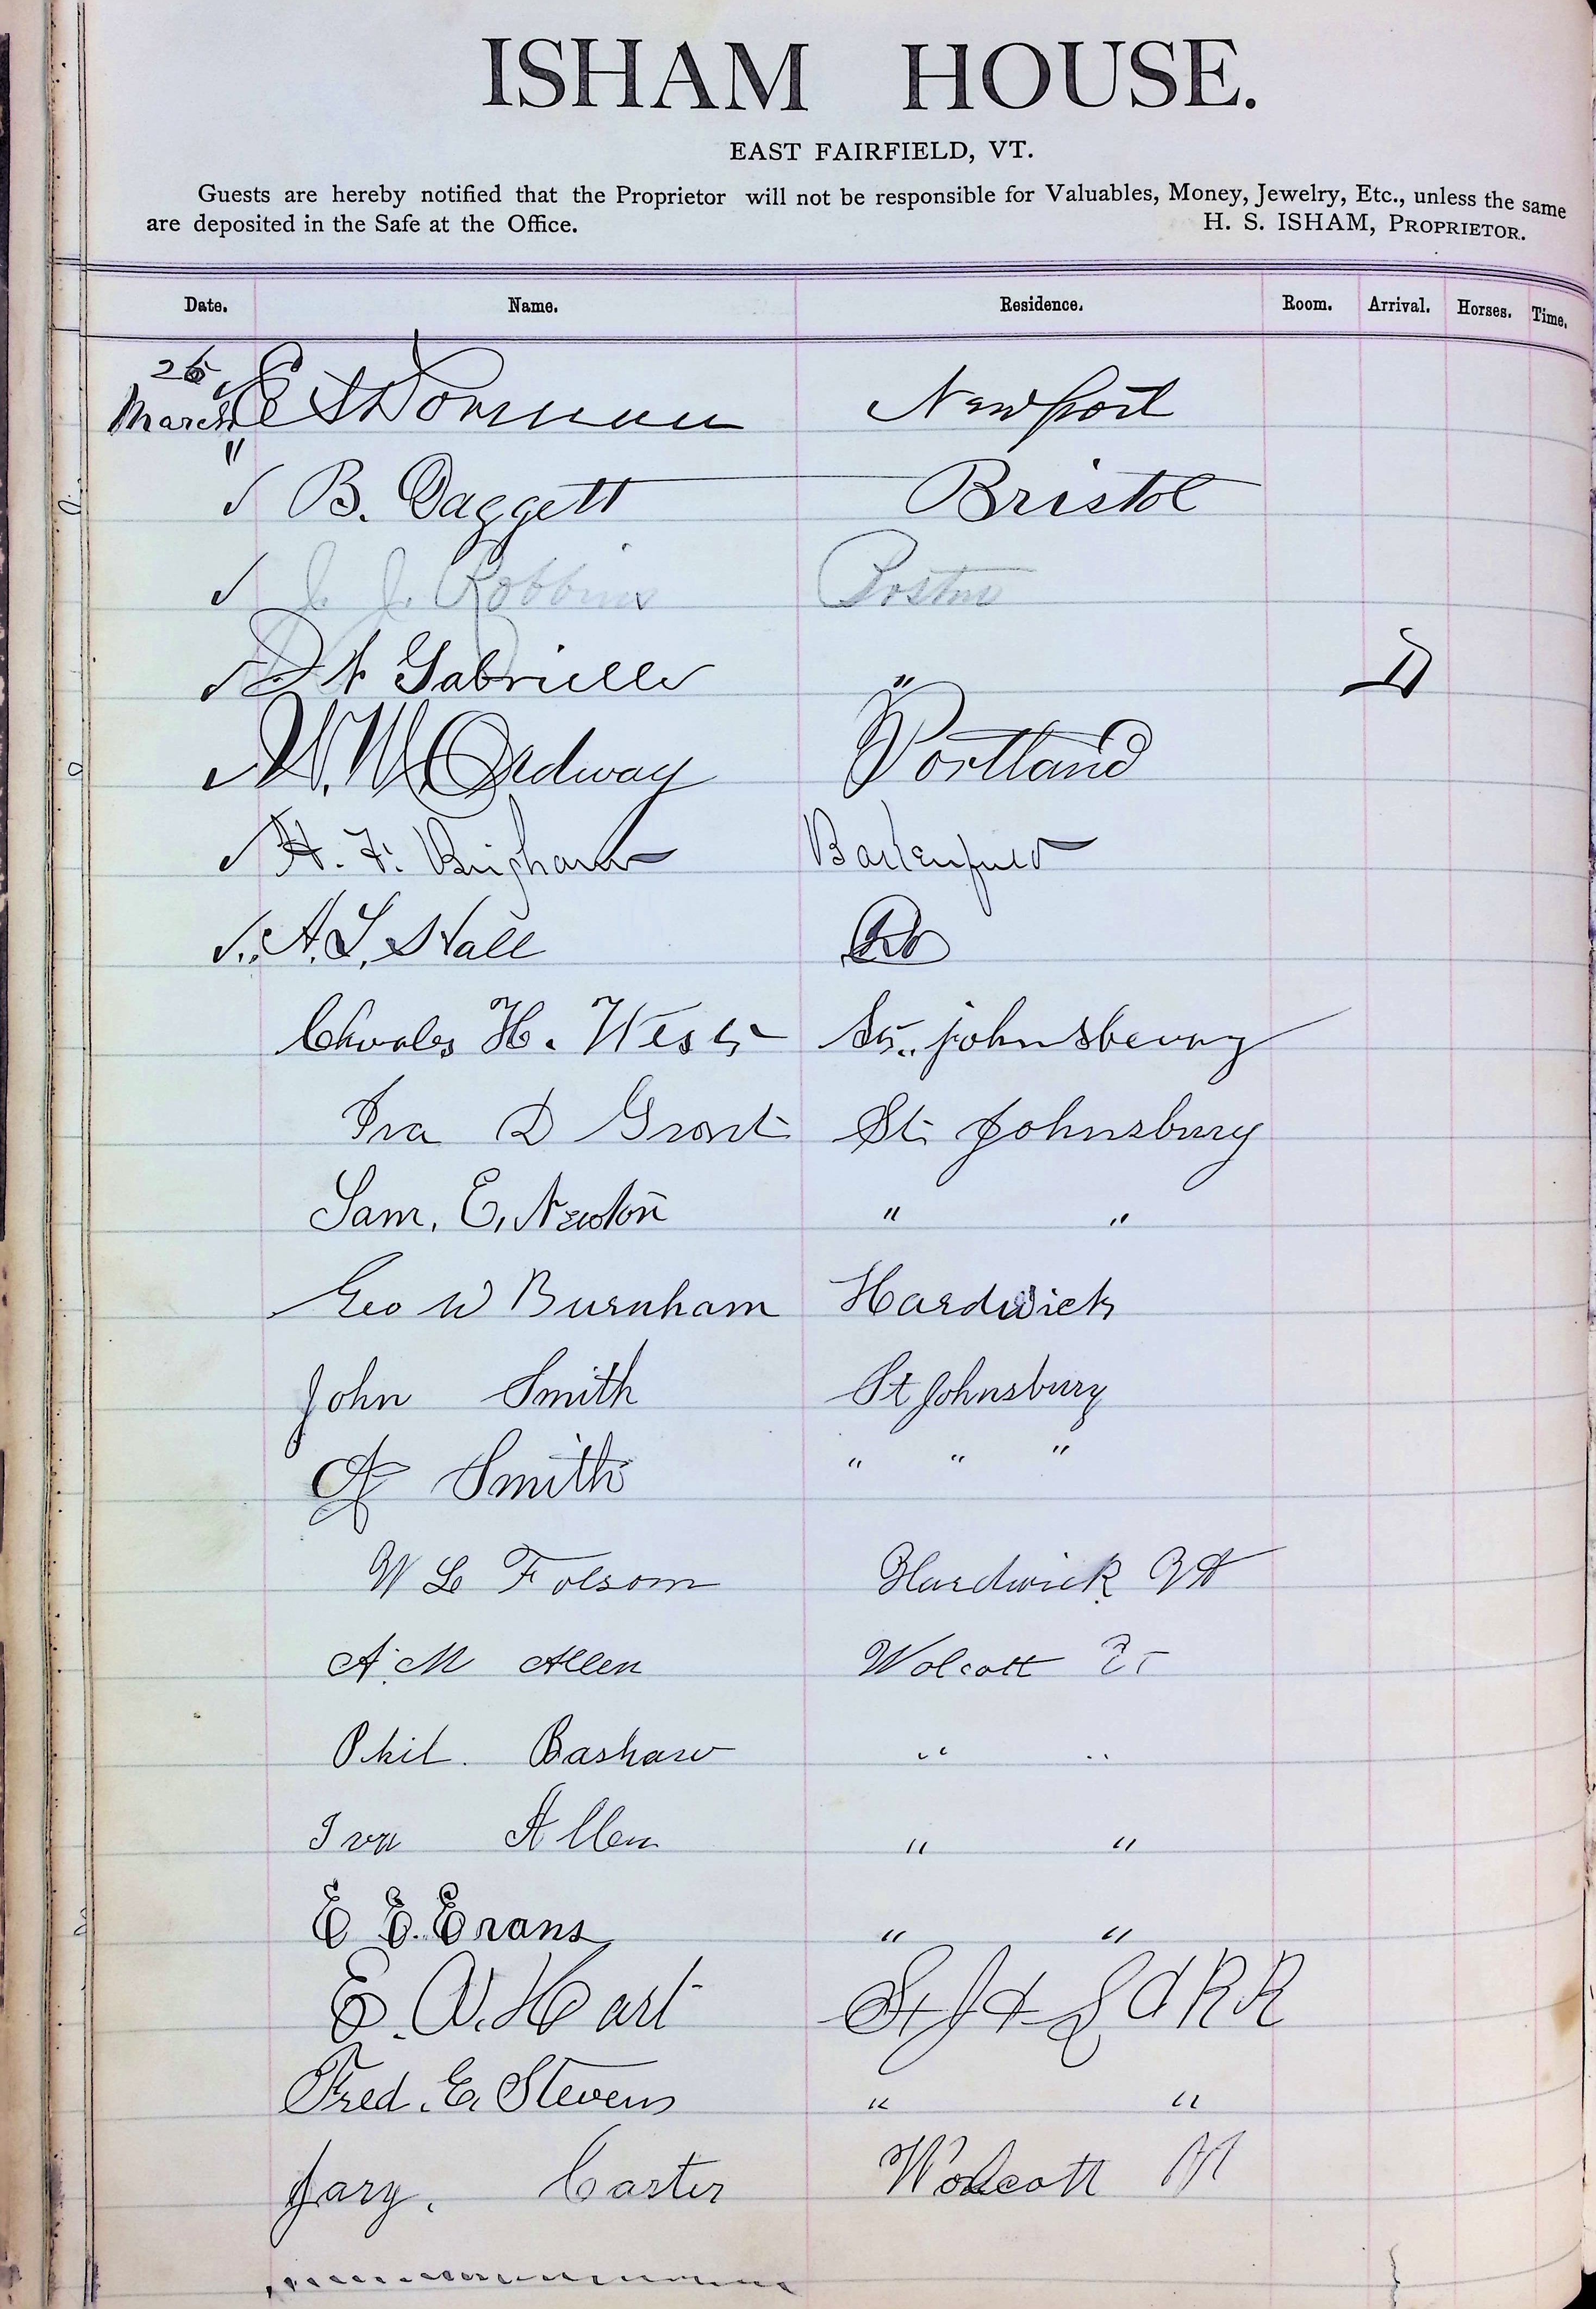 ISHAM HOUSE.
EAST FAIRFIELD, VT.
Guests are hereby notified that the Proprietor will not be responsible for Valuables, Money, Jewelry, Etc., unless the same
are deposited in the Safe at the Office. H. S. ISHAM, PROPRIETOR.
Date. Name. Residence. Room. Arrival. Horses. Time.
March E S Dorman Newport
" B. Daggett Bristol
J. J. Robbins Boston
Gabrielle "
W. W. Ordway Portland
H. F. Brigham Bakersfield
A. L. Hall Do
Charles H. West St. johnsberry
Ira D Grant St. Johnsbury
Sam. E. Newton " "
Geo W Burnham Hardwick
John Smith St Johnsbury
Smith " " "
W L Folsom Hardwick Vt
A. M Allen Wolcott Vt
Phil. Bashaw " "
Ira Allen " "
E E. Evans " "
E. W. Hart St J & L C R R
Fred. E. Stevens " "
Carter Wolcott Vt